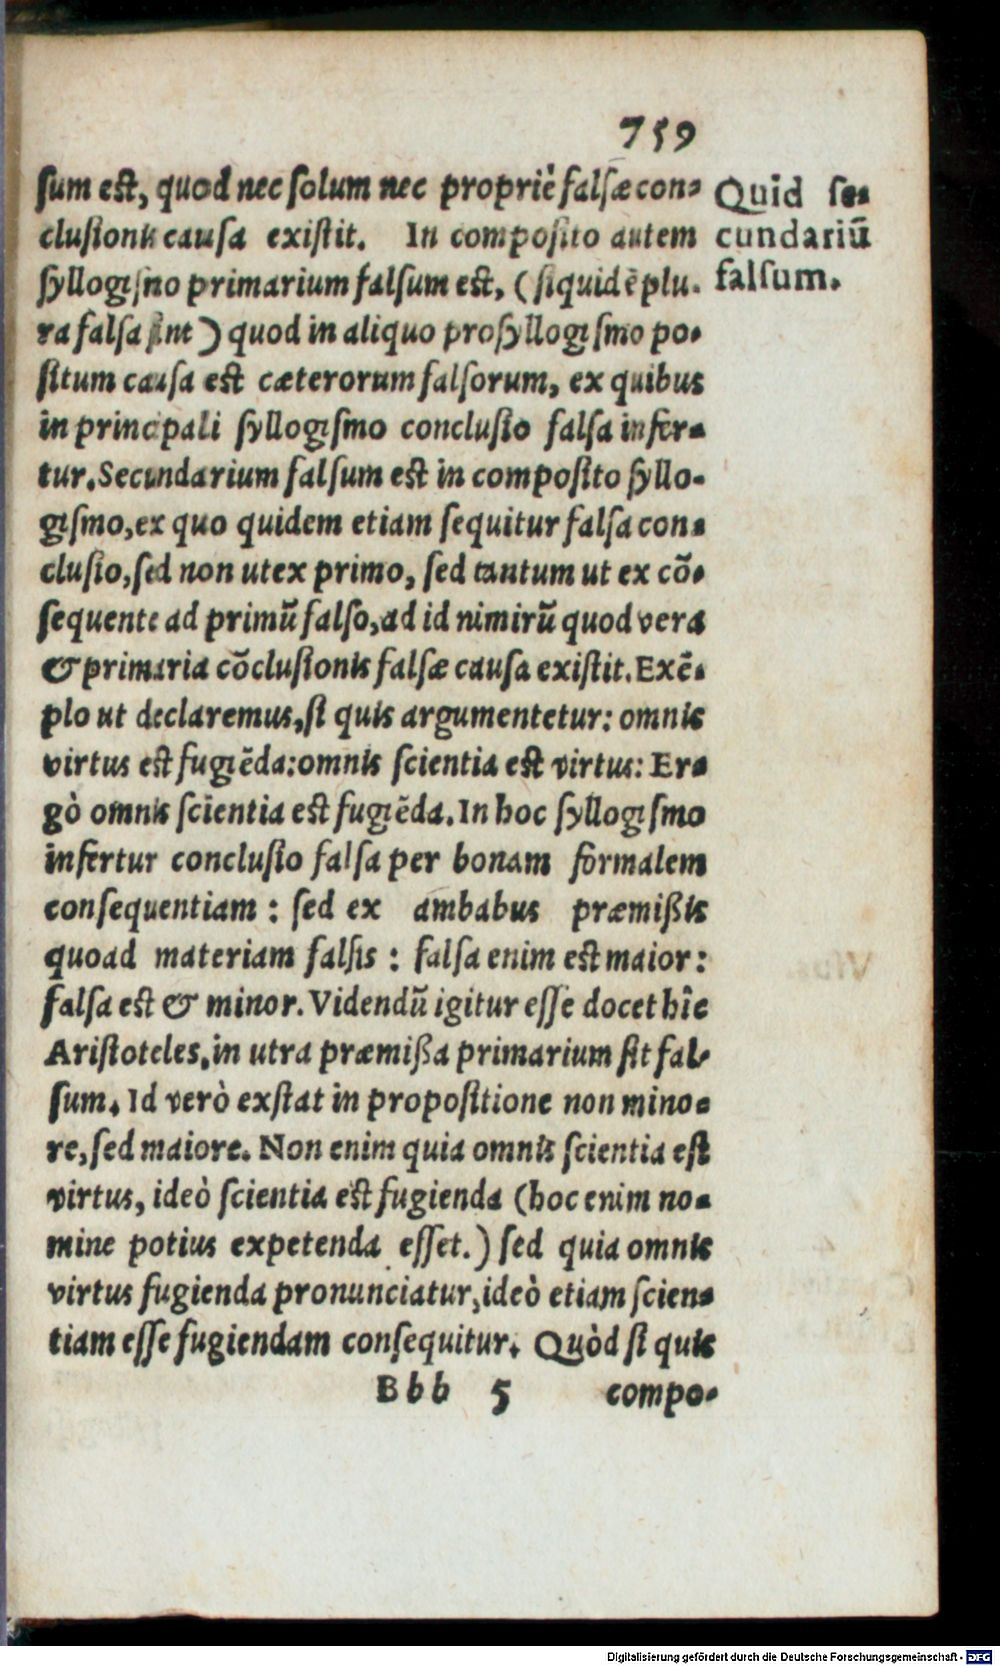 759
sum est, quod nec solum nec propriè falsæ con-
clusionis causa existit. In composito autem
syllogismo primarium falsum est, (siquidẽ plu-
ra falsa sint) quod in aliquo prosyllogismo po-
situm causa est cæterorum falsorum, ex quibus
in principali syllogismo conclusio falsa infer-
tur. Secundarium falsum est in composito syllo-
gismo, ex quo quidem etiam sequitur falsa con-
clusio, sed non ut ex primo, sed tantum ut ex cõ-
sequente ad primũ falso, ad id nimirũ quod vera
& primaria cõclusionis falsæ causa existit. Exẽ-
plo ut declaremus, si quis argumentetur: omnis
virtus est fugiẽda: omnis scientia est virtus: Er-
gò omnis scientia est fugiẽda. In hoc syllogismo
infertur conclusio falsa per bonam formalem
consequentiam: sed ex ambabus præmißis
quoad materiam falsis: falsa enim est maior:
falsa est & minor. Videndũ igitur esse docet hîc
Aristoteles, in utra præmißa primarium sit fal-
sum. Id verò exstat in propositione non mino-
re, sed maiore. Non enim quia omnis scientia est
virtus, ideò scientia est fugienda (hoc enim no-
mine potius expetenda esset.) sed quia omnis
virtus fugienda pronunciatur, ideò etiam scien-
tiam esse fugiendam consequitur. Quòd si quis
Bbb 5 compo-
Quid se-
cundariũ
falsum.
Digitalisierung gefördert durch die Deutsche Forschungsgemeinschaft - DFG